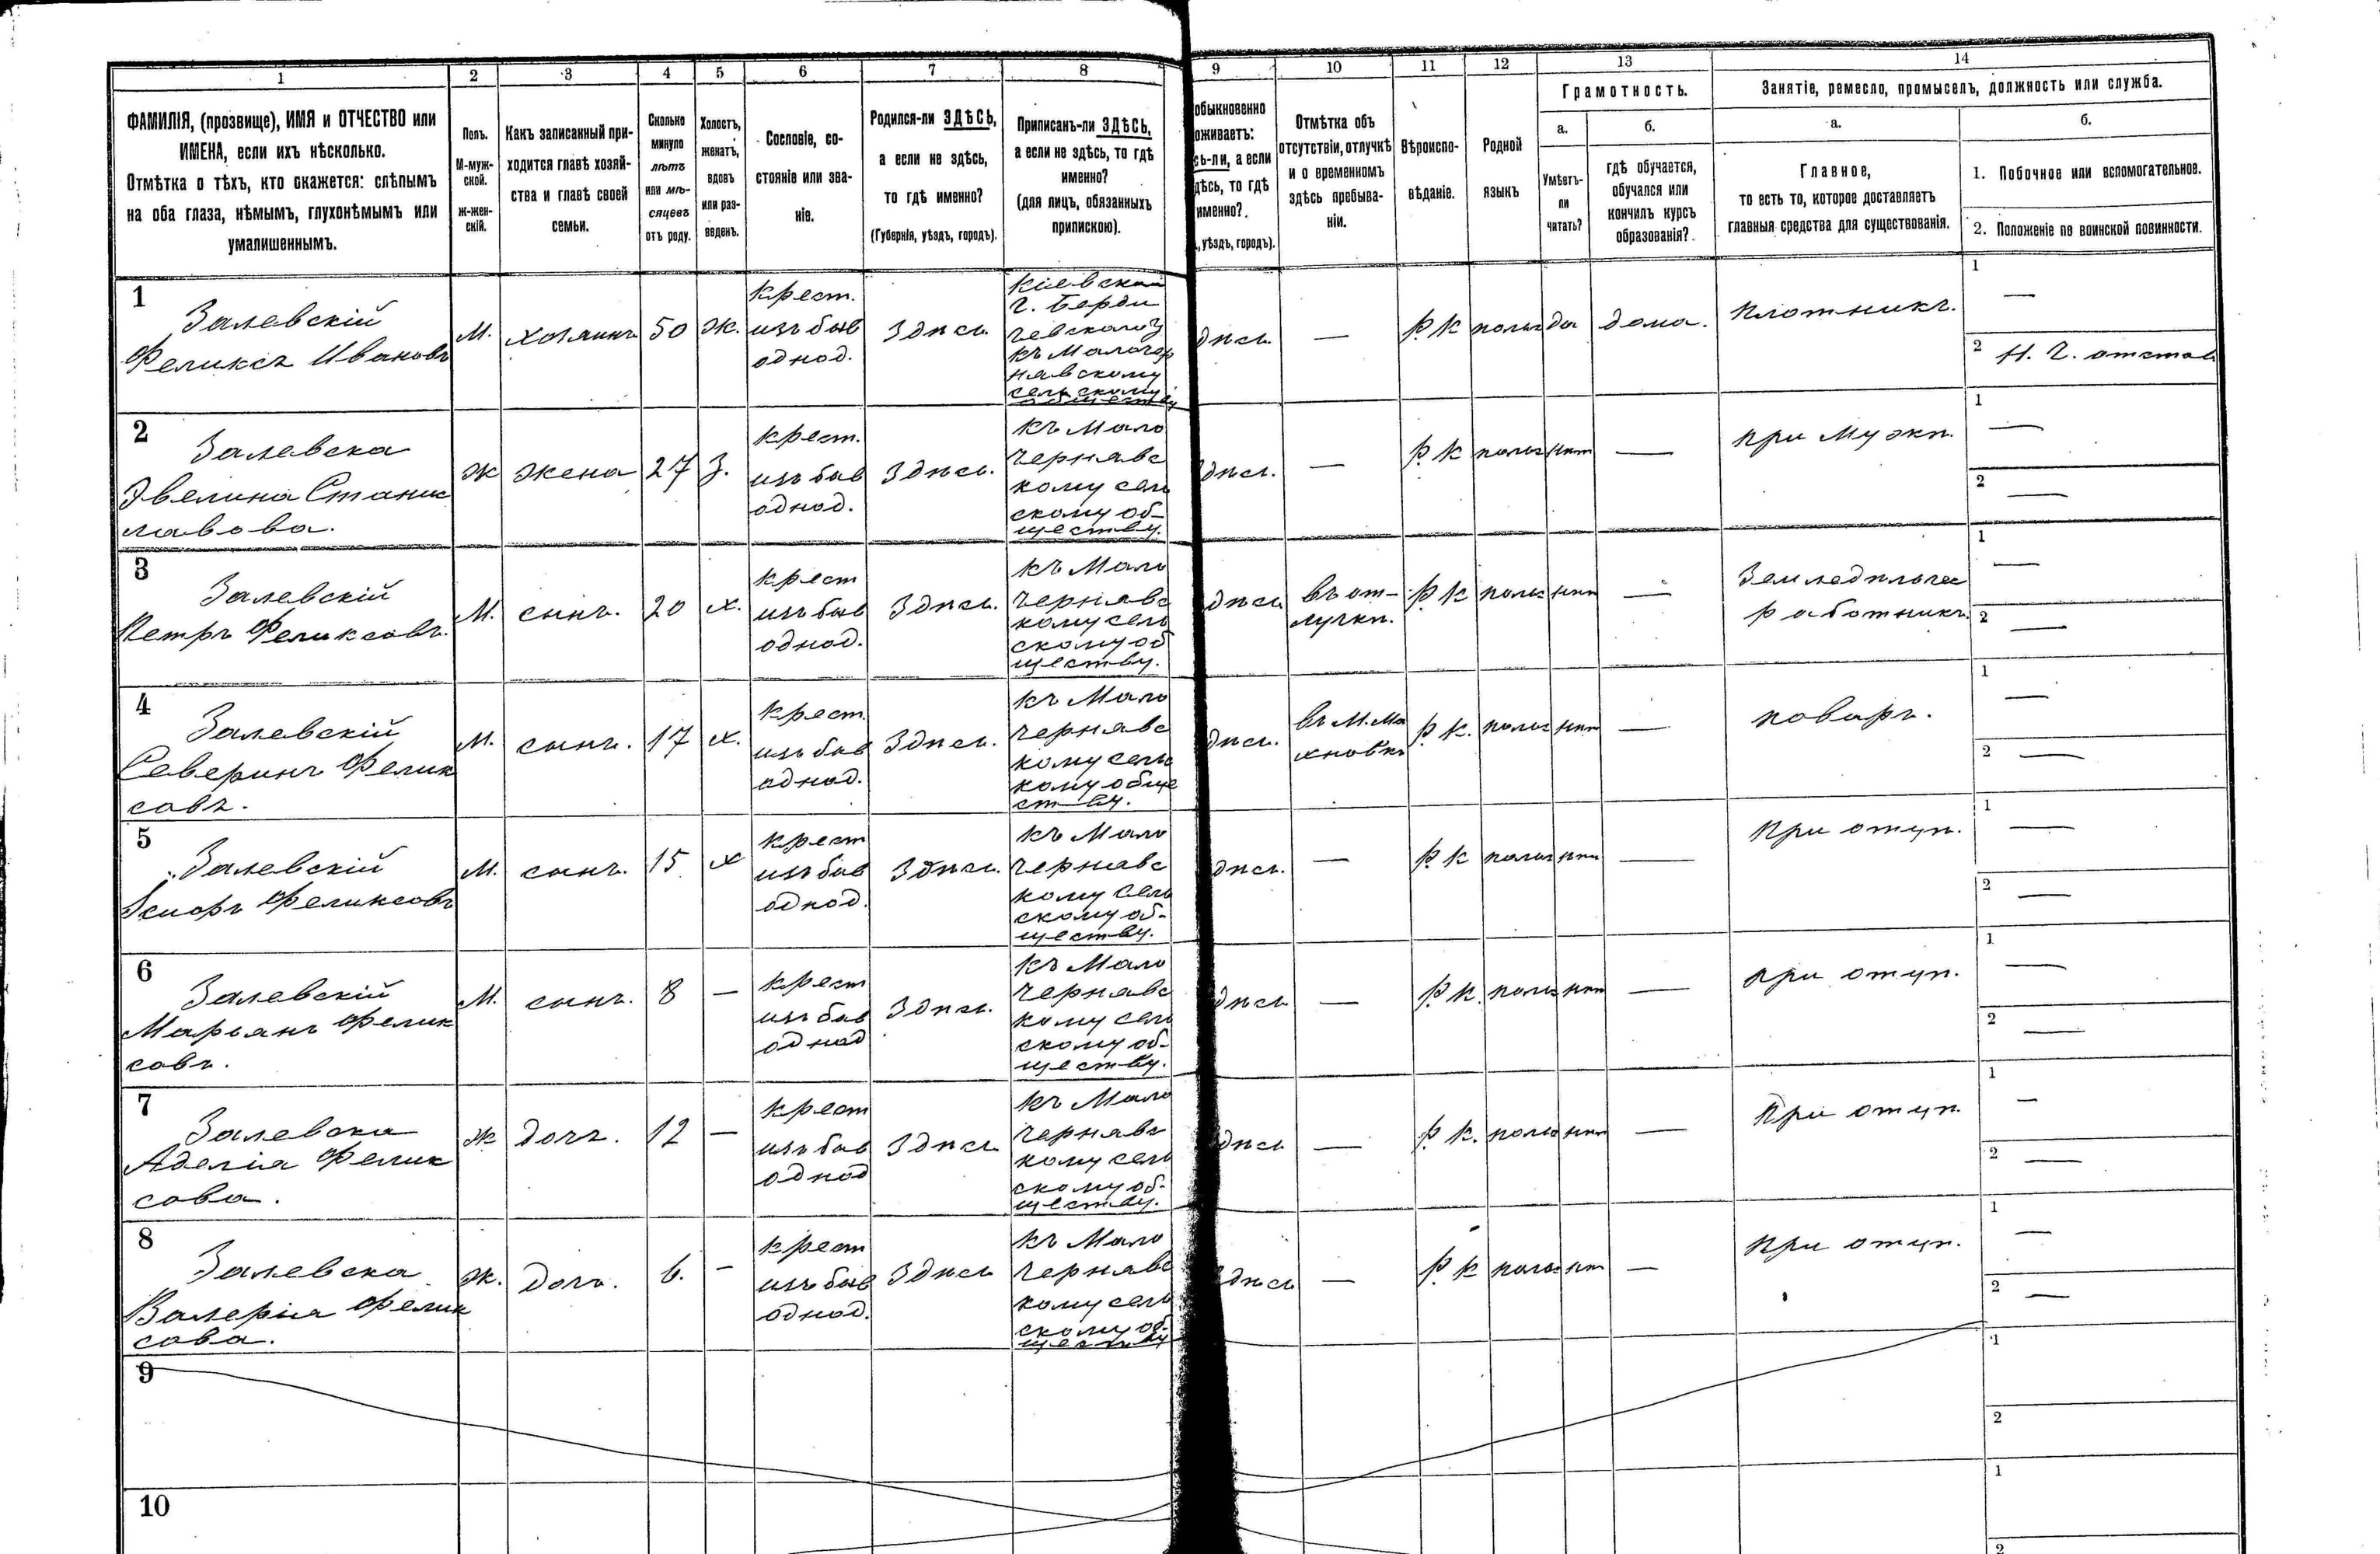 1 2 3 4 5 6 7 8 9 10 11 12 13 14
ФАМИЛІЯ, (прозвище), ИМЯ и ОТЧЕСТВО или
ИМЕНА, если ихъ нѣсколько.
Отмѣтка о тѣхъ, кто окажется: слѣпымъ
на оба глаза, нѣмымъ, глухонѣмымъ или
умалишеннымъ.
Полъ.
М-муж-
ской.
Ж-жен-
скій.
Какъ записанный при-
ходится главѣ хозяй-
ства и главѣ своей
семьи.
Сколько
минуло
лѣтъ
или мѣ-
сяцевъ
отъ роду.
Холостъ,
женатъ,
вдовъ
или раз-
веденъ.
Сословіе, со-
стояніе или зва-
ніе.
Родился-ли ЗДѢСЬ,
а если не здѣсь,
то гдѣ именно?
(Губернія, уѣздъ, городъ).
Приписанъ-ли ЗДѢСЬ,
а если не здѣсь, то гдѣ
именно?
(для лицъ, обязанныхъ
припискою).
обыкновенно
оживаетъ:
сь-ли, а если
дѣсь, то гдѣ
именно?
, уѣздъ, городъ).
Отмѣтка объ
отсутствіи, отлучкѣ
и о временномъ
здѣсь пребыва-
ніи.
Вѣроиспо-
вѣданіе.
Родной
языкъ
Грамотность.
а.
Умѣетъ-
ли
читать?
б.
гдѣ обучается,
обучался или
кончилъ курсъ
образованія?
Занятіе, ремесло, промыселъ, должность или служба.
а.
Главное,
то есть то, которое доставляетъ
главныя средства для существованія.
б.
1. Побочное или вспомогательное.
2. Положеніе по воинской повинности.
1
Залевскій
Феликсъ Ивановъ
М.
хозяинъ
50
ж.
крест.
изъ быв
однод.
Здѣсь
Кіевской
г. Берди
чевскаго у
къ Малочер
нявскому
сельскому
обществу
дѣсь
—
Р. К
польс
да
дома.
плотникъ.
1
—
2 Н. Ч. отстав
2
Залевска
Эвелина Станис
лавова.
ж
жена
27
З.
крест.
изъ быв
однод.
Здѣсь.
къ Мало
чернявс
кому сель
скому об-
ществу.
дѣсь.
—
Р. К
польс
нѣт
—
при мужѣ.
1
—
2
—
3
Залевскій
Петръ Феликсовъ.
М.
сынъ.
20
х.
крест
изъ быв
однод.
Здѣсь.
къ Мало
чернявс
кому сель
скому об
ществу.
дѣсь
въ от-
лучкѣ.
Р. К
польс
нѣт
—
Земледѣльчес
работникъ.
1
—
2
—
4
Залевскій
Северинъ Фелик
совъ.
М.
сынъ.
17
х.
крест.
изъ быв
однод.
Здѣсь.
къ Мало
чернявс
кому сель
кому обще
ству.
дѣсь.
въ М. Ма
хновкѣ
Р. К.
польс
нѣт
—
поваръ.
1
—
2
—
5
Залевскій
Феликсовъ
М.
сынъ.
15
х
крест
изъ быв
однод.
Здѣсь.
къ Мало
чернявс
кому сель
скому об-
ществу.
дѣсь.
—
Р. К
польс
нѣт
—
При отцѣ.
1
—
2
—
6
Залевскій
Марьянъ Фелик
совъ.
М.
сынъ.
8
—
крест
изъ быв
однод
Здѣсь.
къ Мало
чернявс
кому сель
скому об-
ществу.
дѣсь
—
Р. К.
польс
нѣт
—
при отцѣ.
1
—
2
—
7
Залевска
Аделія Фелик
сова.
ж
дочь.
12
—
крест
изъ быв
однод
Здѣсь
къ Мало
чернявс
кому сель
скому об-
ществу.
дѣсь
—
Р. К.
польс
нѣт
—
При отцѣ
1
—
2
—
8
Залевска
Валерія Фелик
сова.
ж.
дочь.
6.
—
крест
изъ быв
однод.
Здѣсь
къ Мало
чернявс
кому сель
скому об-
ществу
дѣсь
—
Р. К
польс
нѣт
—
при отцѣ.
1
—
2
—
9
1
2
10
1
2